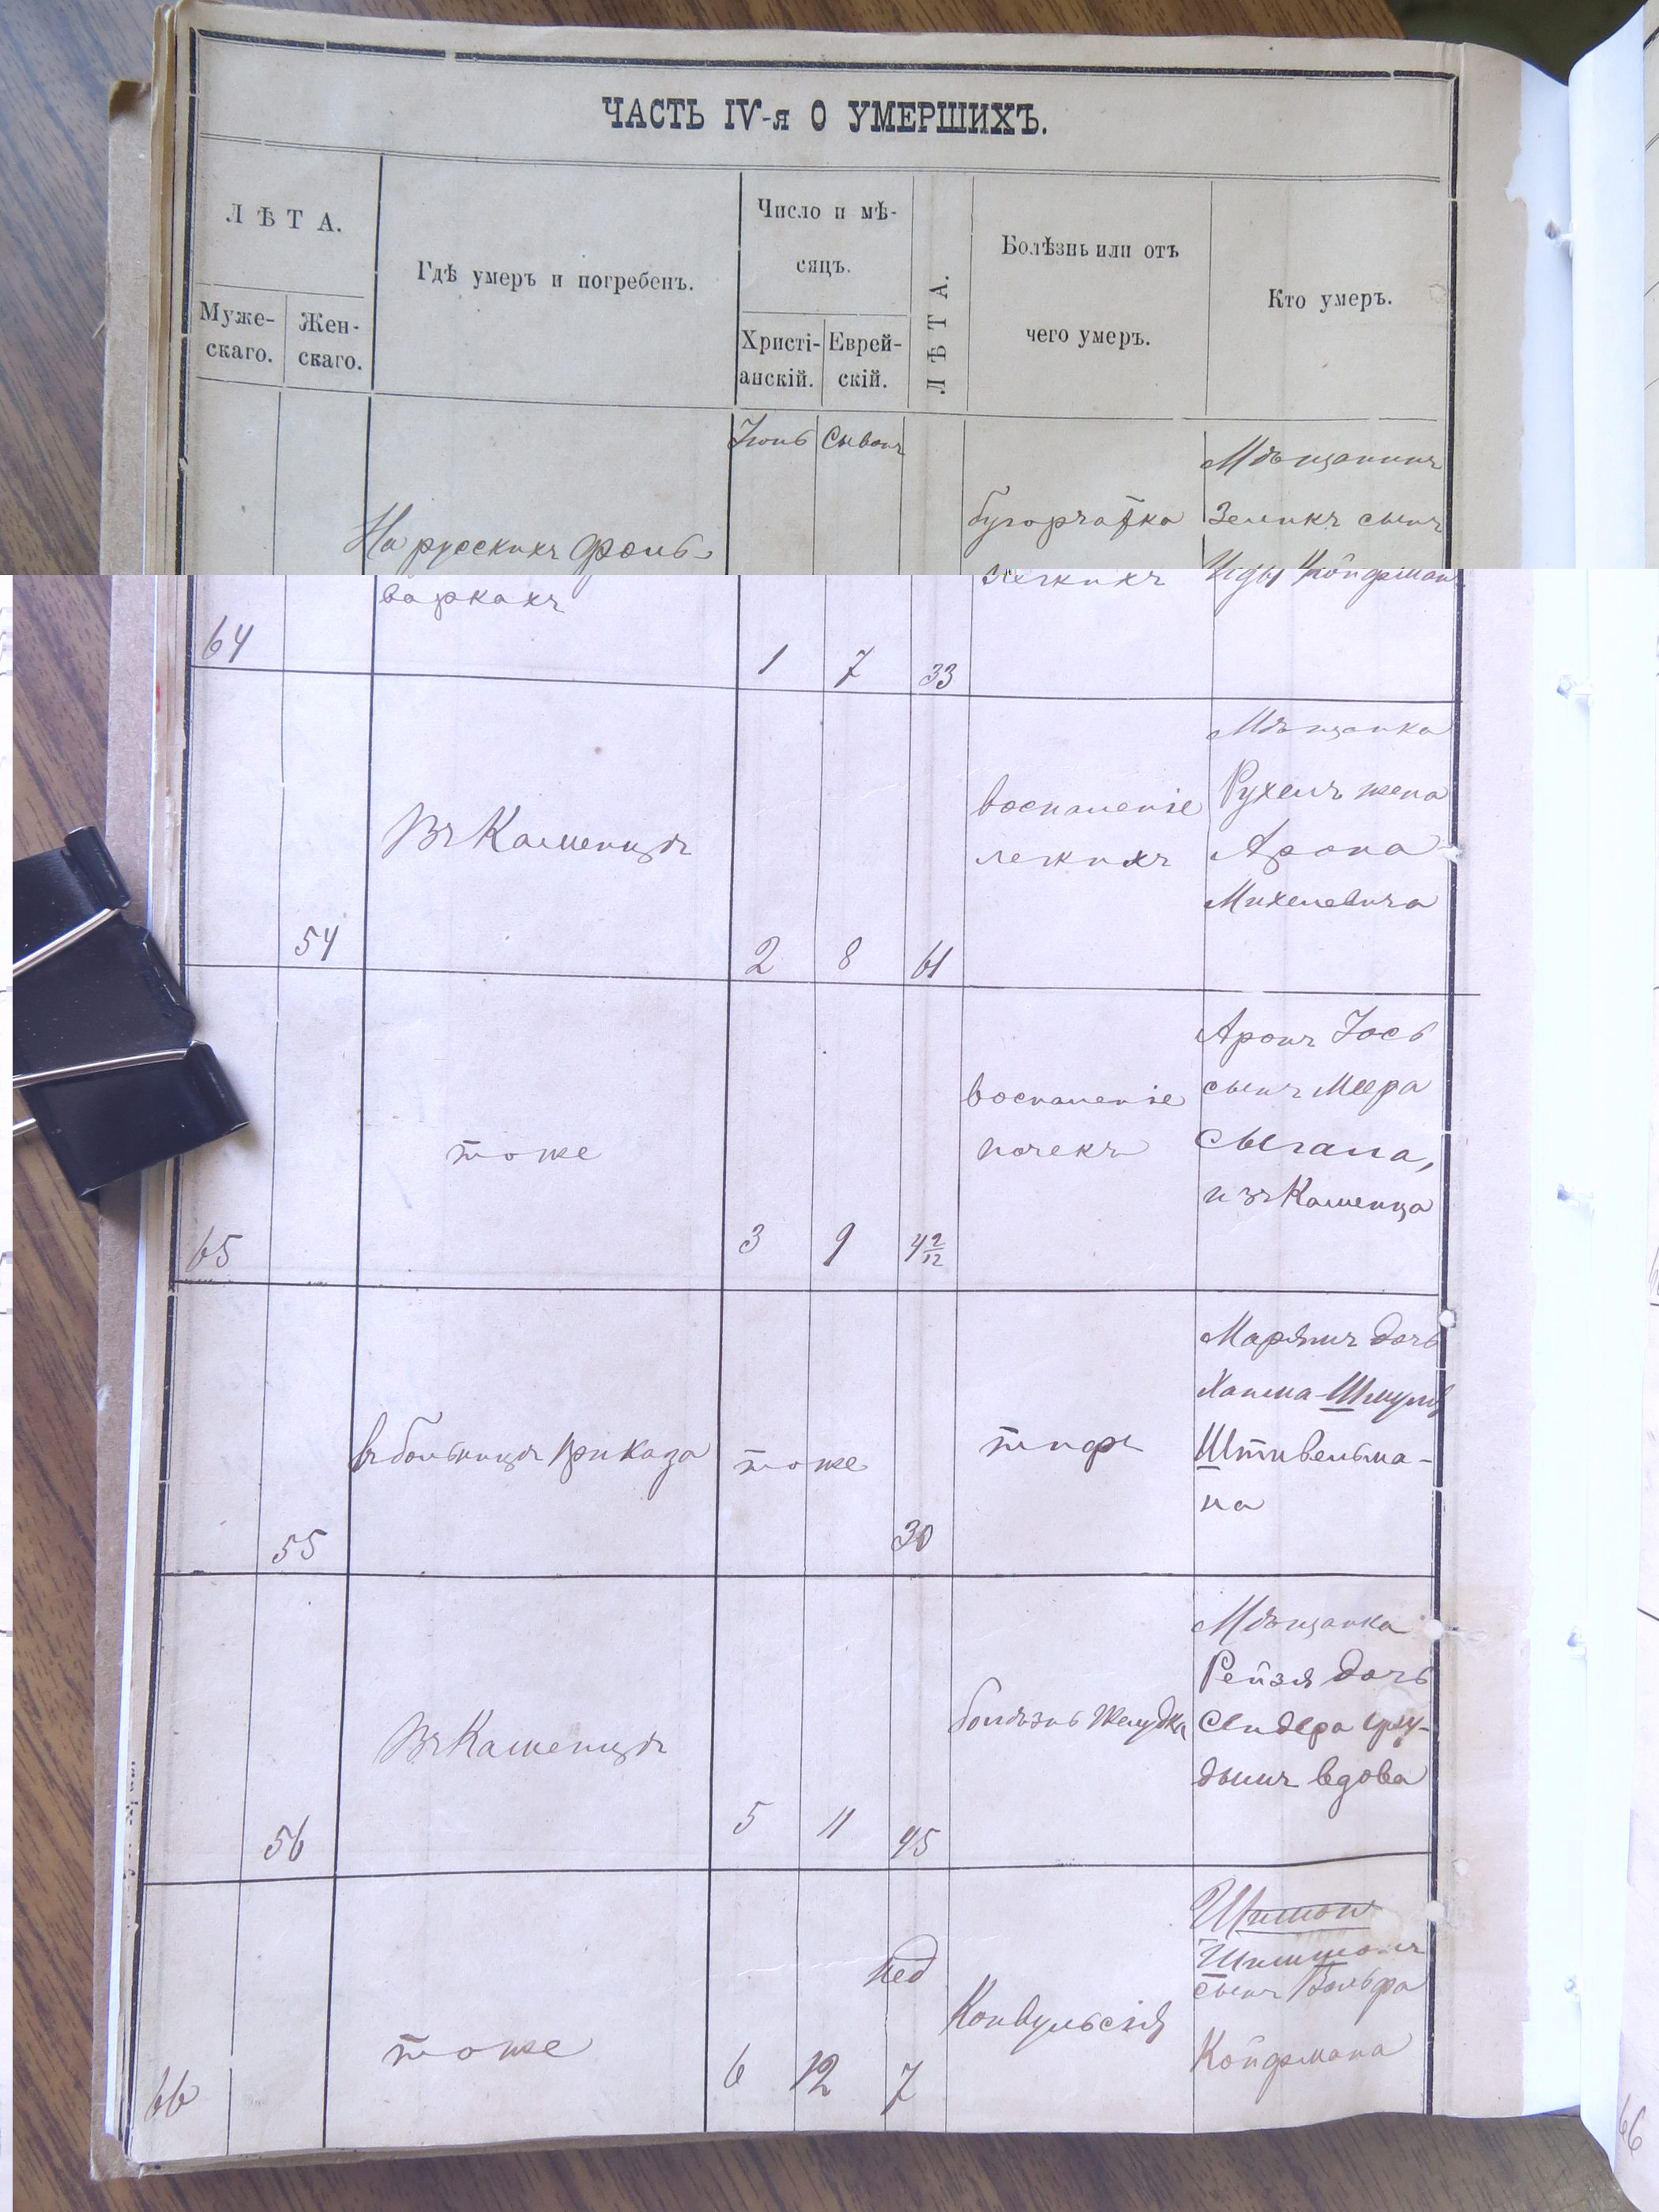 ЧАСТЬ IV-я О УМЕРШИХЪ.
ЛѢТА.
Муже-
скаго.
Жен-
скаго.
Гдѣ умеръ и погребенъ.
Число и мѣ-
сяцъ.
Христі-
анскій.
Еврей-
скій.
ЛѢТА.
Болѣзнь или отъ
чего умеръ.
Кто умеръ.
Іюнь
Сыванъ
64
На русскихъ фоль-
варкахъ
1
7
33
бугорчатка
легкихъ
Мѣщанинъ
Зеликъ сынъ
Иды Койфман
54
Въ Каменцѣ
2
8
61
воспаленіе
легкихъ
Мѣщанка
Рухель жена
Арона
Михелевича
65
тоже
3
9
4 2/12
воспаленіе
почекъ
Аронъ Іось
сынъ Меера
Сыгала,
изъ Каменца
55
въ больницѣ приказа
тоже
30
тифъ
дочь
Хаима-Шмуля
Штивельма-
на
56
Въ Каменцѣ
5
11
45
болѣзнь желудка
Мѣщанка
Рейзя дочь
Сендера
вдова
66
тоже
6
12
нед
7
Конвульсія
сынъ Вольфа
Койфмана
66